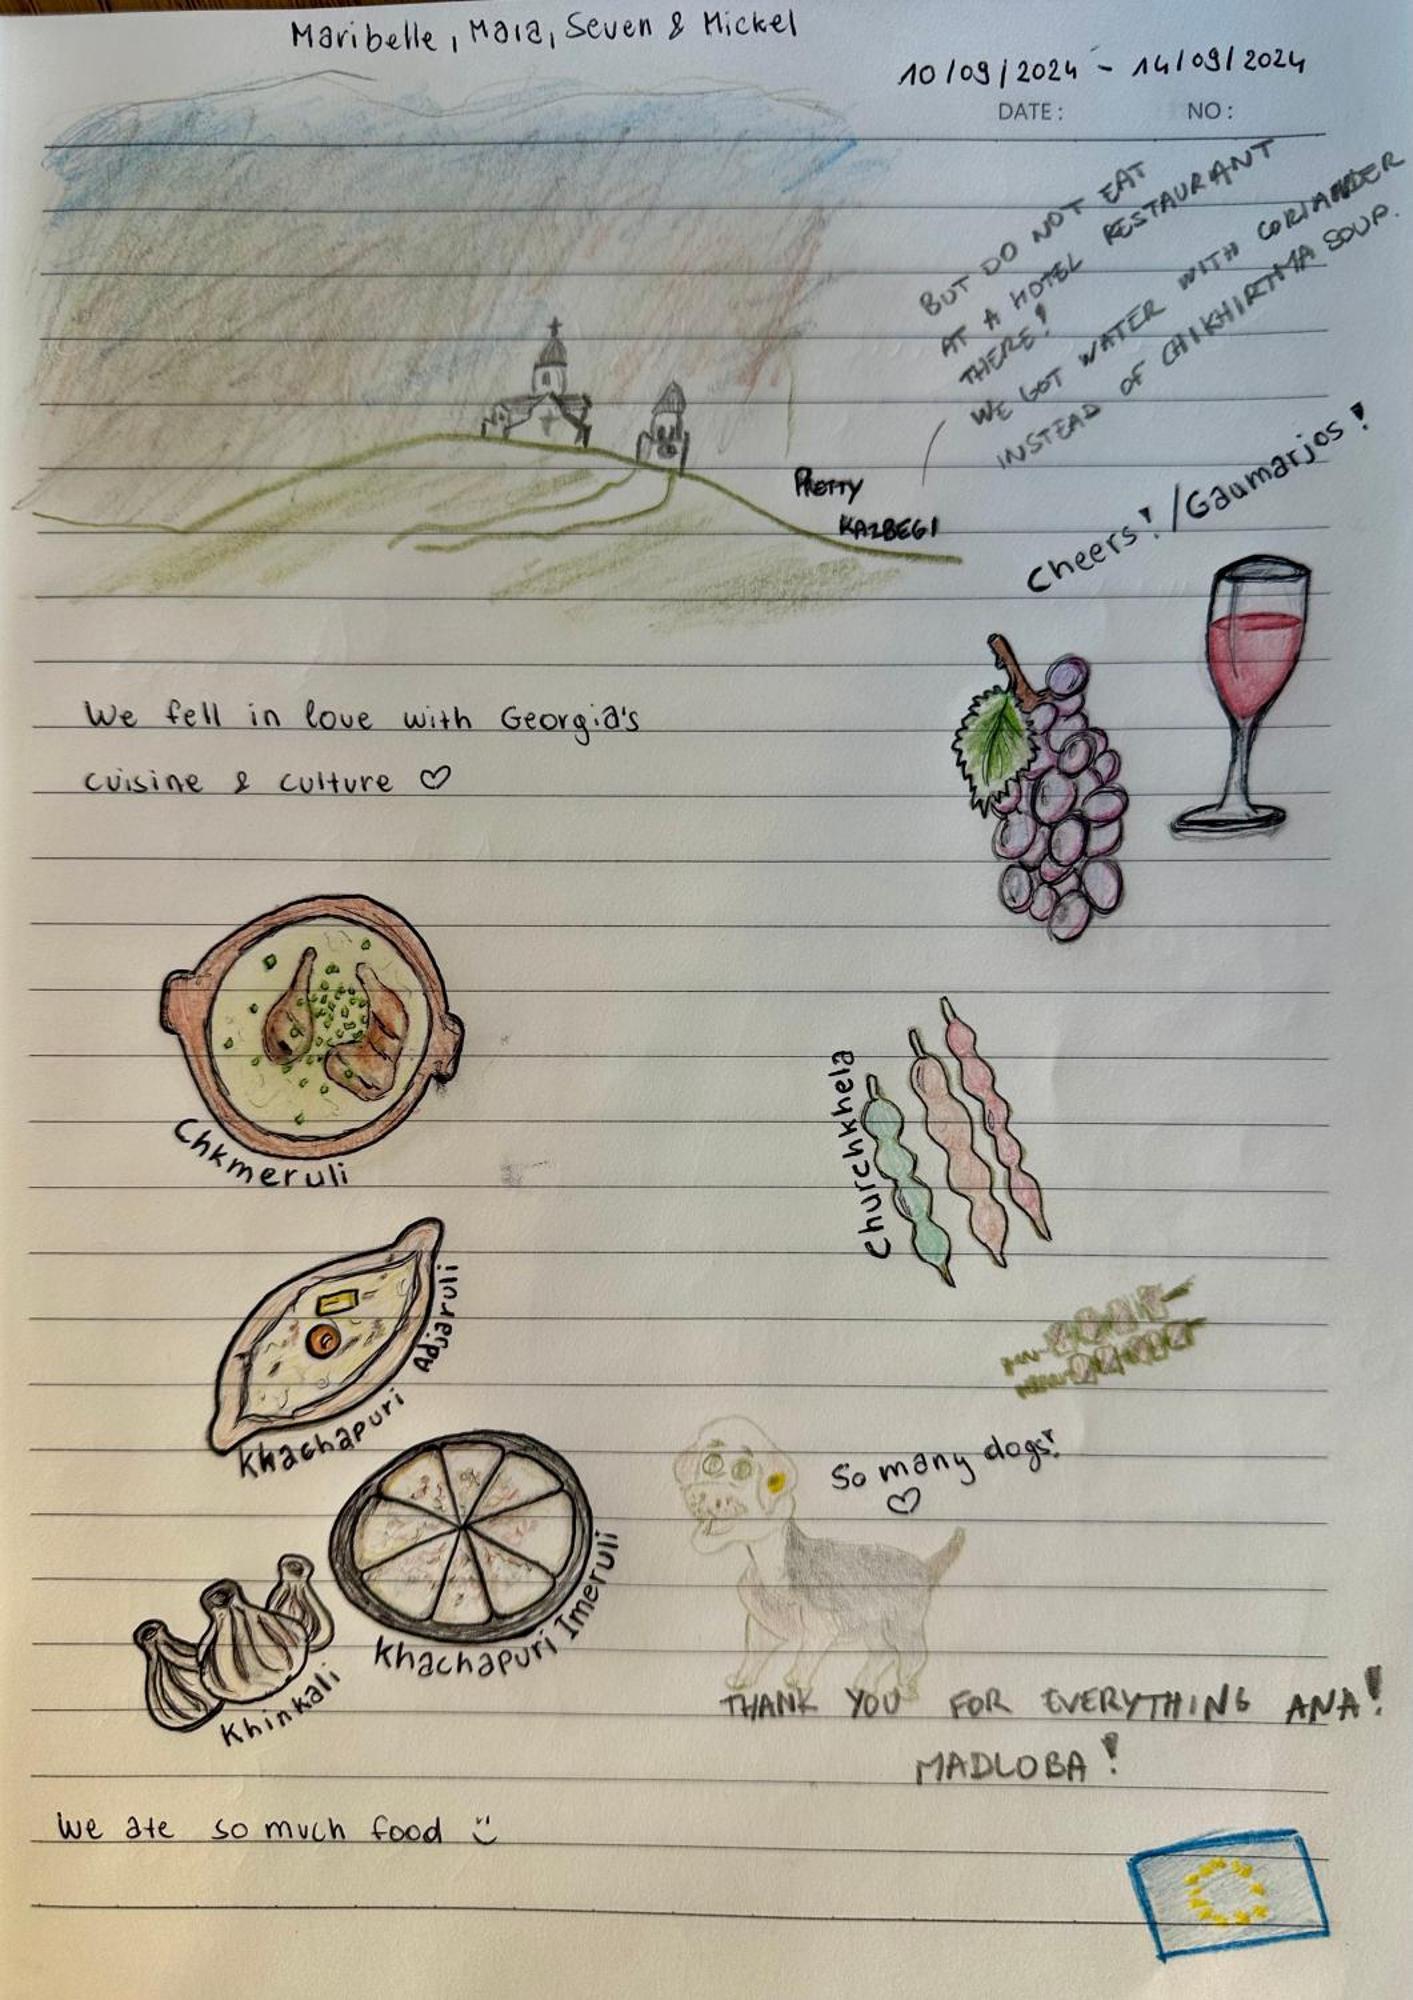 Maribelle, Maia, Seven & Mickel
10/09/2024 - 14/09/2024
DATE: NO:
BUT DO NOT EAT
AT A HOTEL RESTAURANT
THERE!
WE GOT WATER WITH CORIANDER
INSTEAD OF CHIKHIRTMA SOUP.
PRETTY
KAZBEGI
Cheers! / Gaumarjos!
We fell in love with Georgia's
cuisine & culture ♡
Chkmeruli
Churchkhela
Khachapuri Adjaruli
So many dogs!
♡
Khachapuri Imeruli
Khinkali
THANK YOU FOR EVERYTHING ANA!
MADLOBA!
We ate so much food